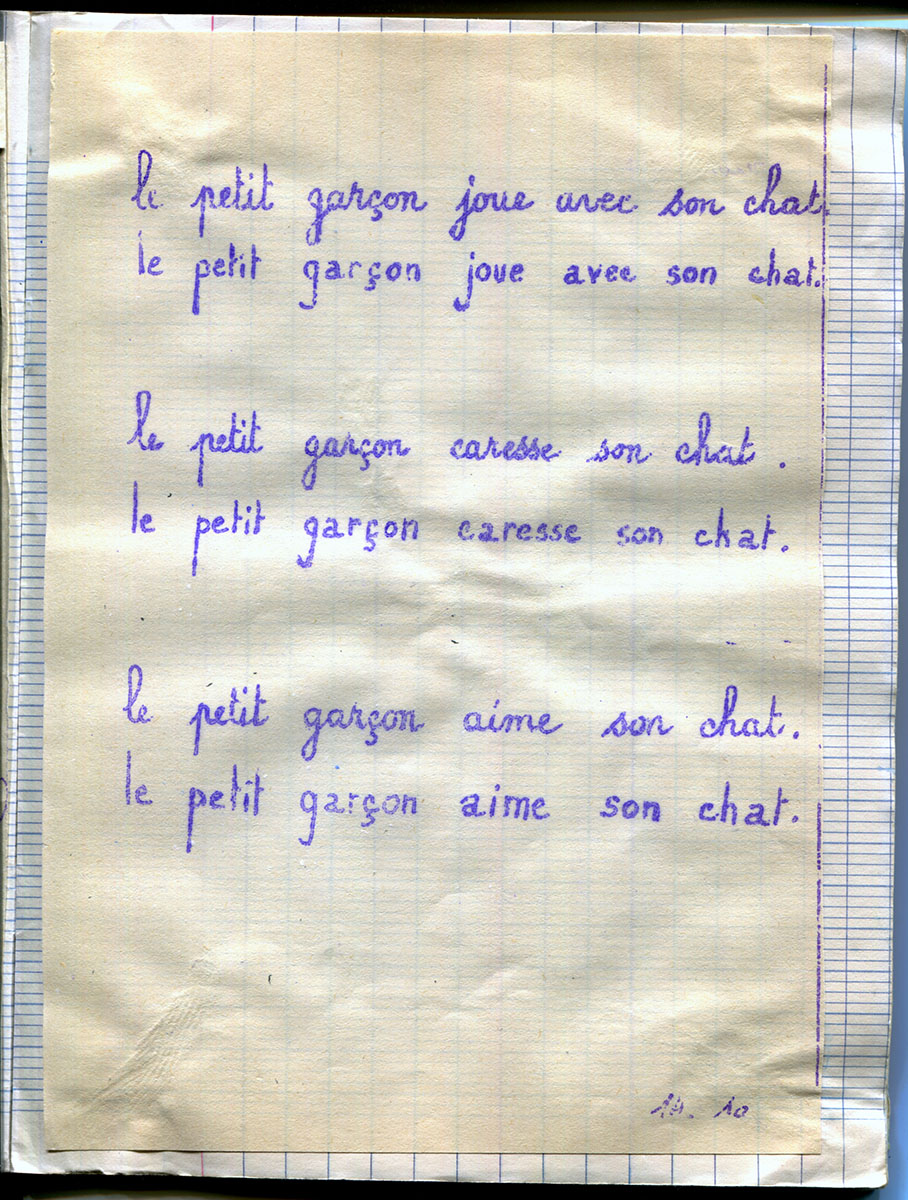 le petit garçon joue avec son chat.
le petit garçon joue avec son chat.
le petit garçon caresse son chat.
le petit garçon caresse son chat.
le petit garçon aime son chat.
le petit garçon aime son chat.